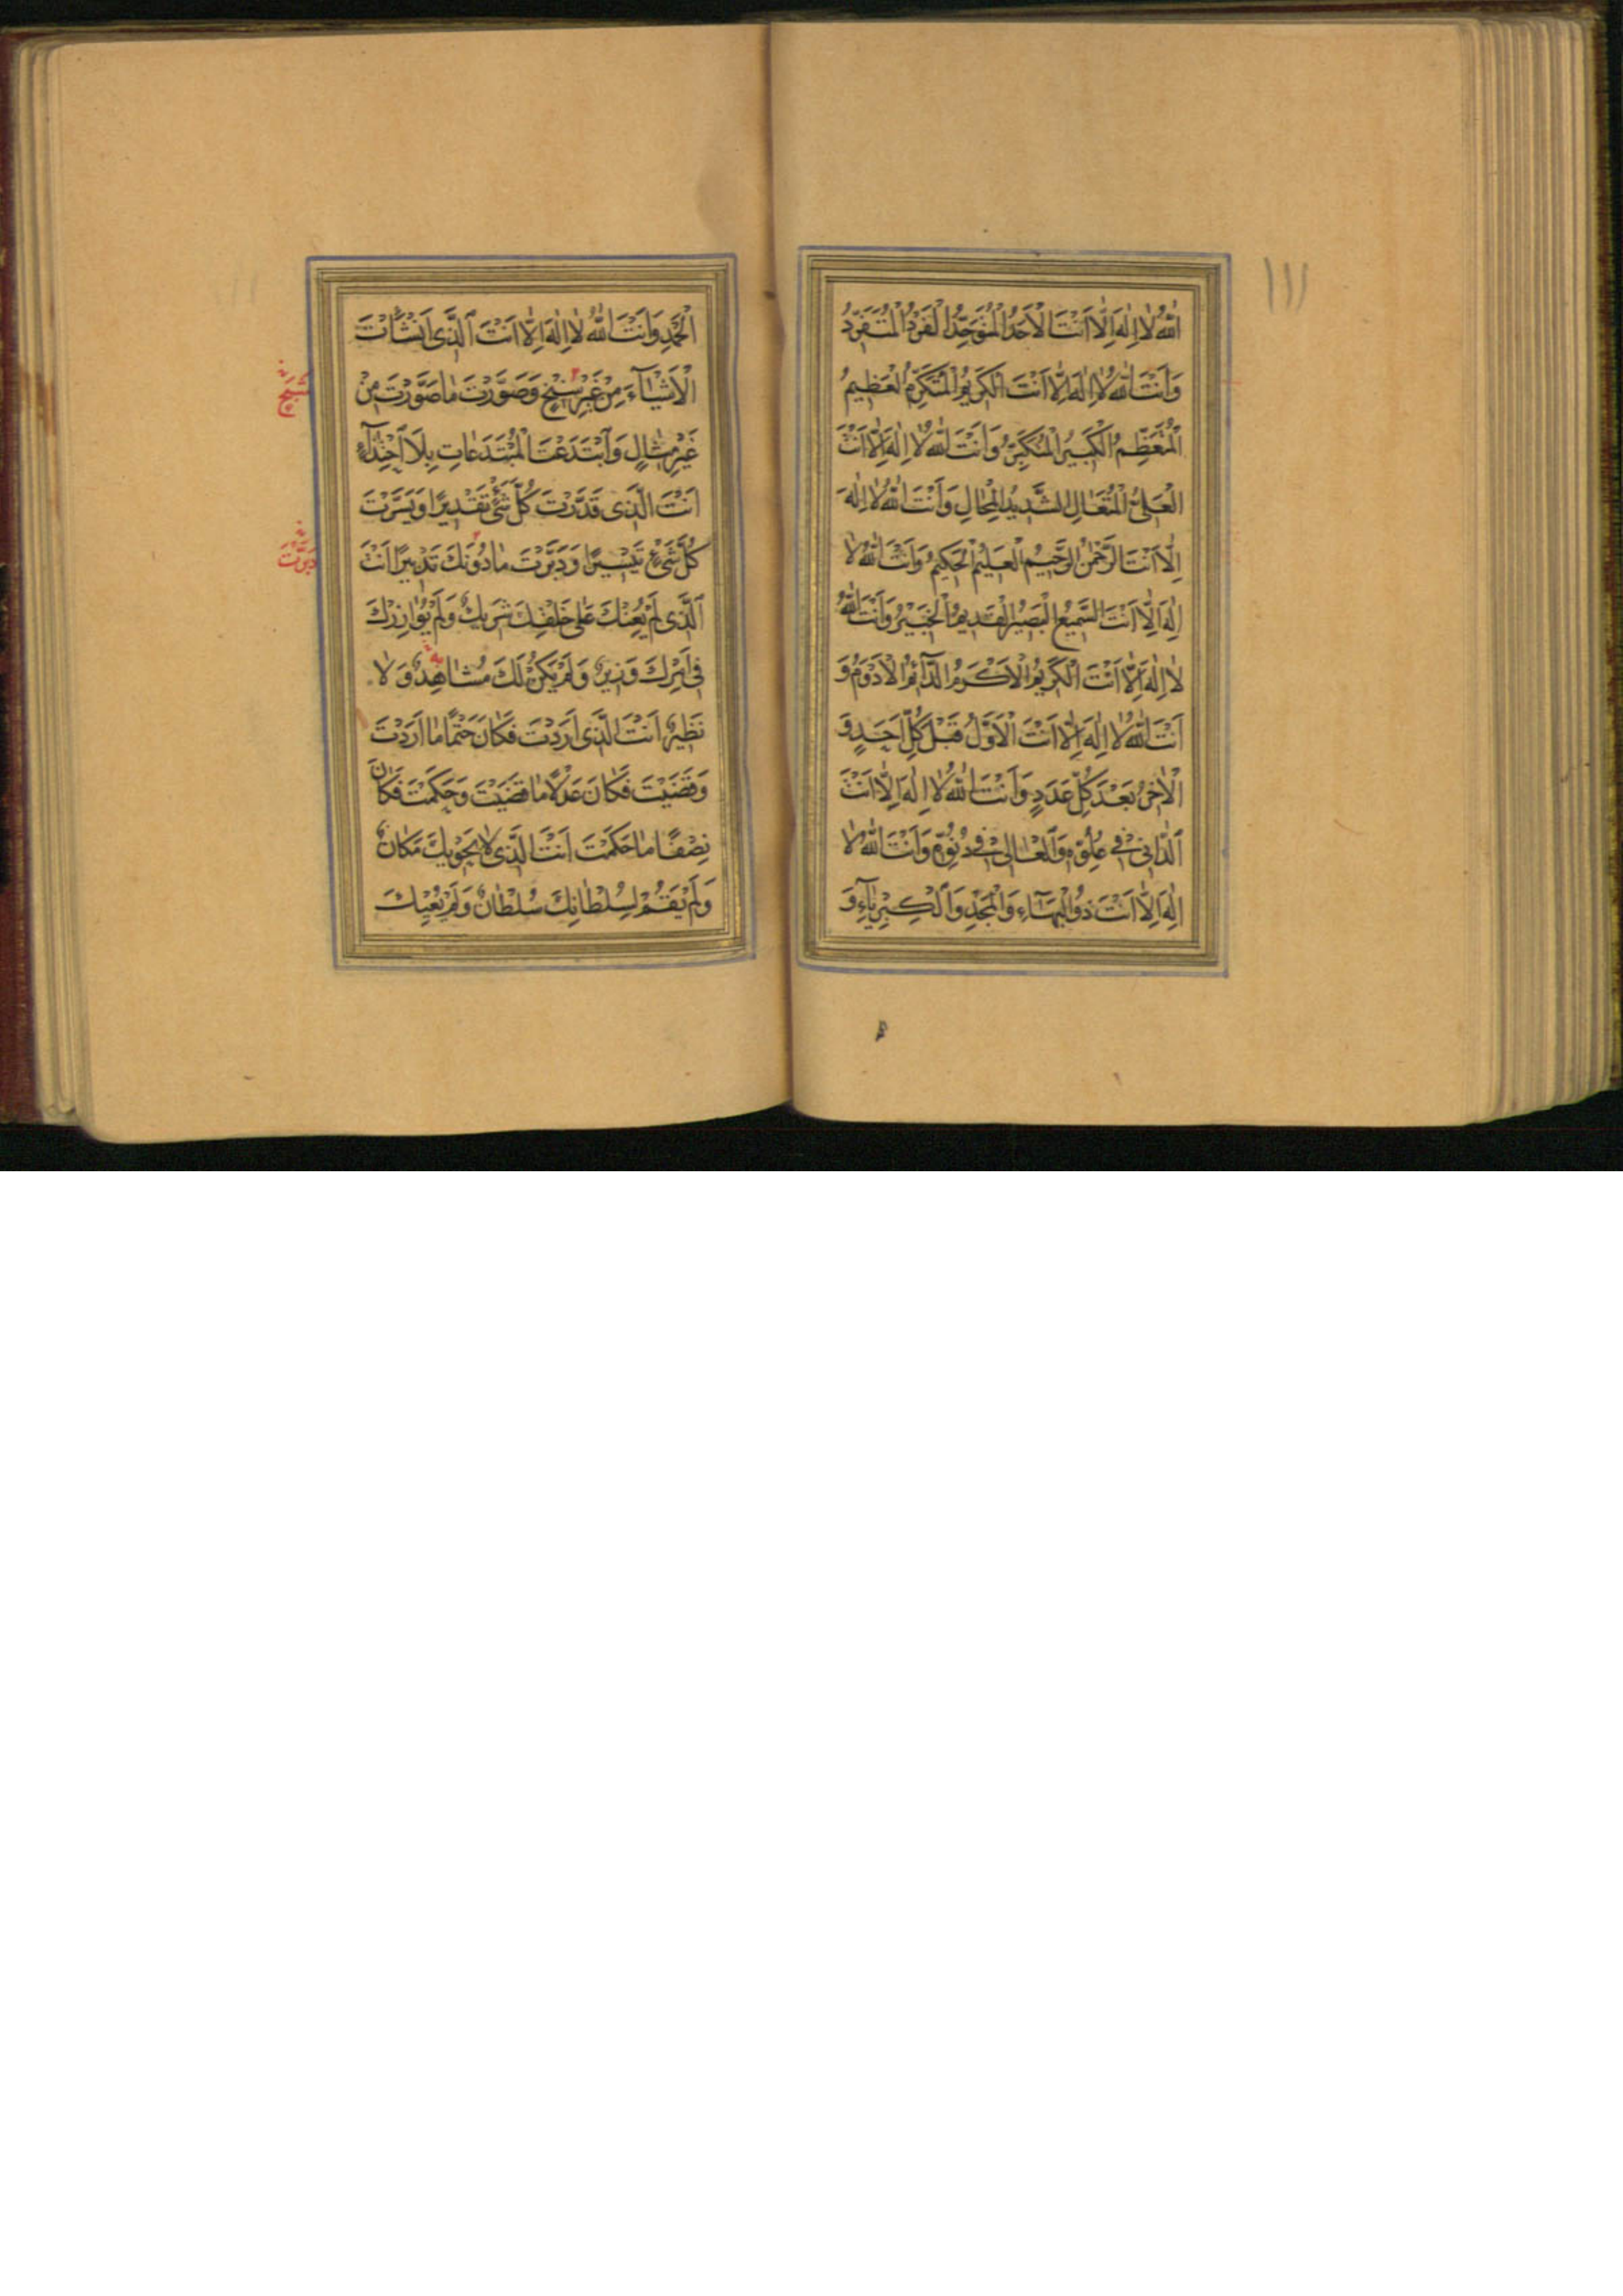 ١١١
اللّٰهُ لَا اِلٰهَ اِلَّا اَنْتَ الْاَحَدُ الْمُتَوَحِّدُ الْفَرْدُ الْمُتَفَرِّدُ
وَاَنْتَ اللّٰهُ لَا اِلٰهَ اِلَّا اَنْتَ الْكَرِيمُ الْمُتَكَرِّمُ الْعَظِيمُ
الْمُتَعَظِّمُ الْكَبِيرُ الْمُتَكَبِّرُ وَاَنْتَ اللّٰهُ لَا اِلٰهَ اِلَّا اَنْتَ
الْعَلِىُّ الْمُتَعَالِ الشَّدِيدُ الْمِحَالِ وَاَنْتَ اللّٰهُ لَا اِلٰهَ
اِلَّا اَنْتَ الرَّحْمٰنُ الرَّحِيمُ الْعَلِيمُ الْحَكِيمُ وَاَنْتَ اللّٰهُ لَا
اِلٰهَ اِلَّا اَنْتَ السَّمِيعُ الْبَصِيرُ الْقَدِيمُ الْخَبِيرُ وَاَنْتَ اللّٰهُ
لَا اِلٰهَ اِلَّا اَنْتَ الْكَرِيمُ الْاَكْرَمُ الدَّآئِمُ الْاَدْوَمُ وَ
اَنْتَ اللّٰهُ لَا اِلٰهَ اِلَّا اَنْتَ الْاَوَّلُ قَبْلَ كُلِّ اَحَدٍ وَ
الْاٰخِرُ بَعْدَ كُلِّ عَدَدٍ وَاَنْتَ اللّٰهُ لَا اِلٰهَ اِلَّا اَنْتَ
الدَّانِى فِى عُلُوِّهِ وَالْعَالِى فِى دُنُوِّهِ وَاَنْتَ اللّٰهُ لَا
اِلٰهَ اِلَّا اَنْتَ ذُو الْبَهَآءِ وَالْمَجْدِ وَالْكِبْرِيَآءِ وَ
الْحَمْدِ وَاَنْتَ اللّٰهُ لَا اِلٰهَ اِلَّا اَنْتَ الَّذِى اَنْشَأْتَ
الْاَشْيَآءَ مِنْ غَيْرِ سِنْخٍ وَصَوَّرْتَ مَا صَوَّرْتَ مِنْ
غَيْرِ مِثَالٍ وَابْتَدَعْتَ الْمُبْتَدَعَاتِ بِلَا احْتِذَآءٍ
اَنْتَ الَّذِى قَدَّرْتَ كُلَّ شَىْءٍ تَقْدِيرًا وَيَسَّرْتَ
كُلَّ شَىْءٍ تَيْسِيرًا وَدَبَّرْتَ مَا دُونَكَ تَدْبِيرًا اَنْتَ
الَّذِى لَمْ يُعِنْكَ عَلٰى خَلْقِكَ شَرِيكٌ وَلَمْ يُوَازِرْكَ
فِى اَمْرِكَ وَزِيرٌ وَلَمْ يَكُنْ لَكَ مُشَاهِدٌ وَلَا
نَظِيرٌ اَنْتَ الَّذِى اَرَدْتَ فَكَانَ حَتْمًا مَا اَرَدْتَ
وَقَضَيْتَ فَكَانَ عَدْلًا مَا قَضَيْتَ وَحَكَمْتَ فَكَانَ
نِصْفًا مَا حَكَمْتَ اَنْتَ الَّذِى لَا يَحْوِيكَ مَكَانٌ
وَلَمْ يَقُمْ لِسُلْطَانِكَ سُلْطَانٌ وَلَمْ يُعْيِكَ
دَبَّرْتَ